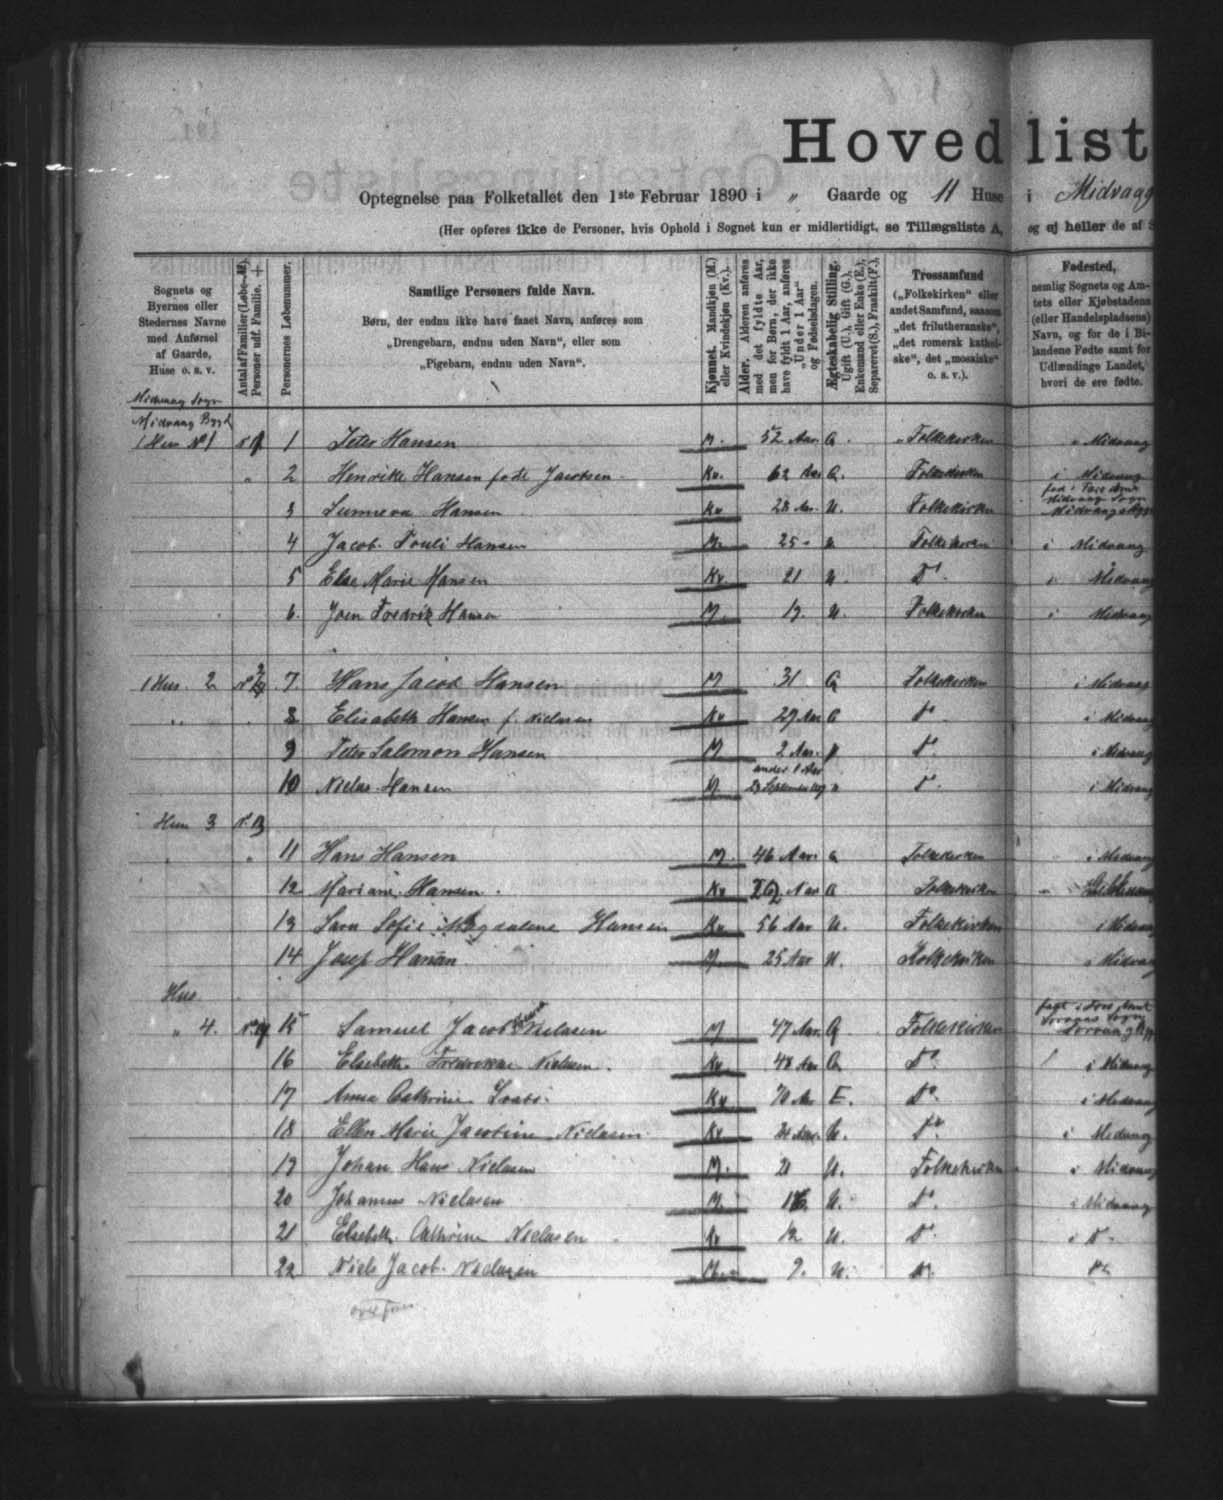 Hovedlist
Optegnelse paa Folketallet den 1ste Februar 1890 i „ Gaarde og 11 Huse i Midvaag
(Her opføres ikke de Personer, hvis Ophold i Sognet kun er midlertidigt, se Tillægsliste A, og ej heller de af S
Sognets og
Byernes eller
Stedernes Navne
med Anførsel
af Gaarde,
Huse o. s. v.
Antal af Familier (Løbe-№).
Personer udf. Familie. +
Personernes Løbenummer.
Samtlige Personers fulde Navn.
Børn, der endnu ikke have faaet Navn, anføres som
„Drengebarn, endnu uden Navn“, eller som
„Pigebarn, endnu uden Navn“.
Kjønnet. Mandkjøn (M.)
eller Kvindekjøn (Kv.).
Alder. Alderen anføres
med det fyldte Aar,
men for Børn, der ikke
have fyldt 1 Aar, anføres
„Under 1 Aar“
og Fødselsdagen.
Ægteskabelig Stilling.
Ugift (U.), Gift (G.),
Enkemand eller Enke (E.),
Separeret (S.), Fraskilt (F.).
Trossamfund
(„Folkekirken“ eller
andet Samfund, saasom
„det frilutheranske“,
„det romersk kathol-
ske“, det „mosaiske“
o. s. v.).
Fødested,
nemlig Sognets og Am-
tets eller Kjøbstadens
(eller Handelspladsens)
Navn, og for de i Bi-
landene Fødte samt for
Udlændinge Landet,
hvori de ere fødte.
Midvaag Sogn
Midvaag Bygd
1 Hus No 1 1 Peter Hansen M. 52 Aar G. Folkekirken Midvaag
2 Henrike Hansen født Jacobsen Kv. 62 Aar G. Folkekirken i Midvaag
3 Sunneva Hansen Kv 28 Aar U. Folkekirken Midvaag Sogn
4 Jacob Pouli Hansen M. 25 u Folkekirken i Midvaag
5 Else Marie Hansen Kv. 21 u Do i Midvaag
6 Joen Fredrik Hansen M 19. U. Folkekirken i Midvaag
1 Hus. 2 7. Hans Jacob Hansen M 31 G Folkekirken i Midvaag
8 Elisabeth Hansen f. Nielsen Kv 29 Aar G Do i Midvaag
9 Peter Salomon Hansen M 2 Aar. Do i Midvaag
under 1 Aar
10 Niclas Hansen M. 23 September Do i Midvaag
Hus 3
11 Hans Hansen M. 46 Aar G Folkekirken i Midvaag
12 Mariane Hansen. Kv Aar G Folkekirken
13 Sara Sofie Magdalene Hansen Kv 56 Aar U. Folkekirken i Midvaag
14 Josep Hansen M 25 Aar U. Folkekirken Midvaag
Hus
„ 4. 15 Samuel Jacob Nielasen M 47 Aar G Folkekirken Sogn
16 Elsebeth Nielasen. Kv 48 Aar G Do i Midvaag
17 Anna Cathrine Kv 70 Aar E. Do i Midvaag
18 Ellen Marie Jacobine Nielasen Kv 24 Aar U. Do i Midvaag
19 Johan Hans Nielasen M. 21 U. Folkekirken i Midvaag
20 Johannes Nielasen M. U. Do i Midvaag
21 Elsebeth Cathrine Nielasen Kv 12 U. Do i Do
22 Niels Jacob Nielasen M. 9. U. Do Do